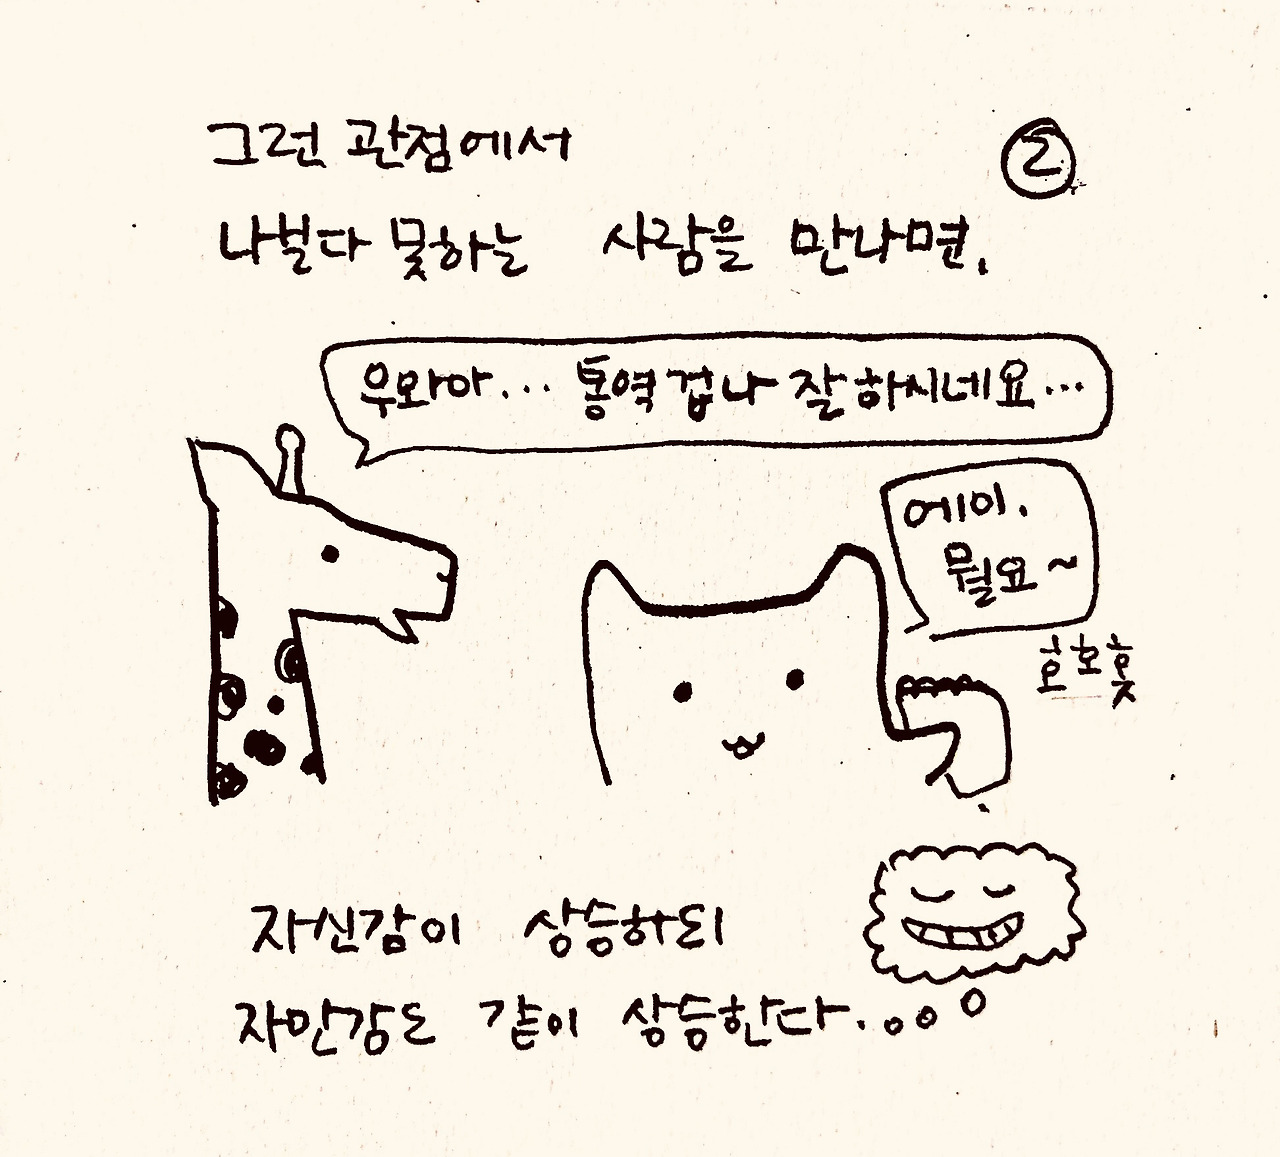 그런 관점에서
②
나보다 못하는 사람을 만나면,
우와아... 통역 겁나 잘 하시네요...
에이.
뭘요~
호호홋
자신감이 상승하되
자만감도 같이 상승한다.